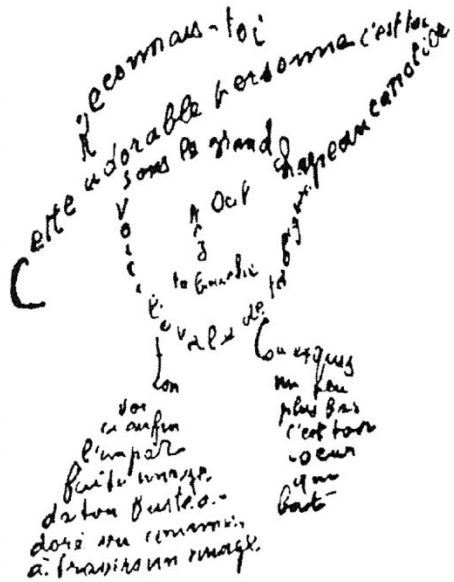 Reconnais-toi
Cette adorable personne c'est toi
Sous le grand chapeau canotier
Oeil
Nez
ta bouche
Voici l'ovale de ta figure
Ton
Cou exquis
Voi
ci enfin
l'impar
faite image
de ton buste a-
doré vu comme
à travers un nuage.
un peu
plus bas
c'est ton
coeur
qui
bat